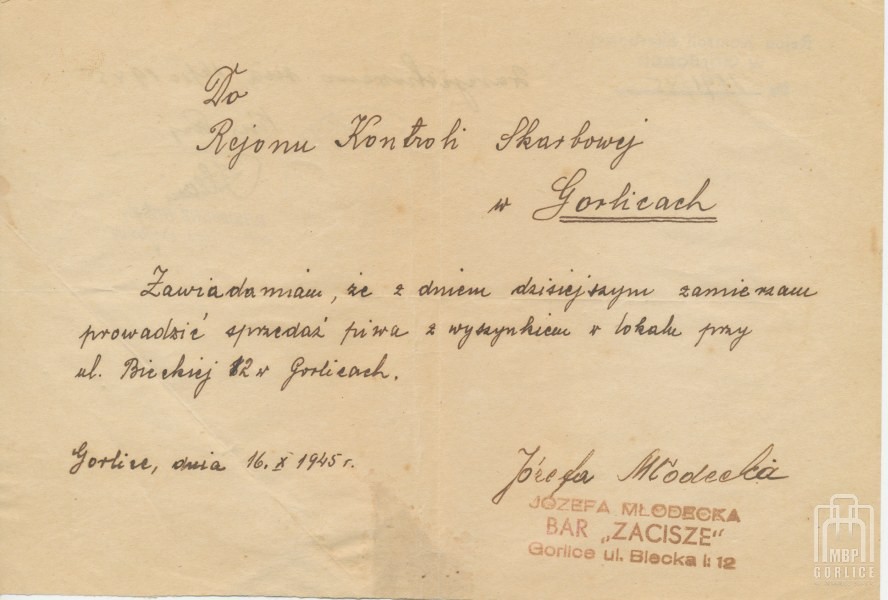 Do
Rejonu Kontroli Skarbowej
w Gorlicach
Zawiadamiam, że z dniem dzisiejszym zamierzam
prowadzić sprzedaż piwa z wyszynkiem w lokalu przy
ul. Bieckiej 12 w Gorlicach.
Gorlice, dnia 16. X 1945 r.
Józefa Młodecka
JÓZEFA MŁODECKA
BAR „ZACISZE"
Gorlice ul. Biecka l: 12
MBP
GORLICE